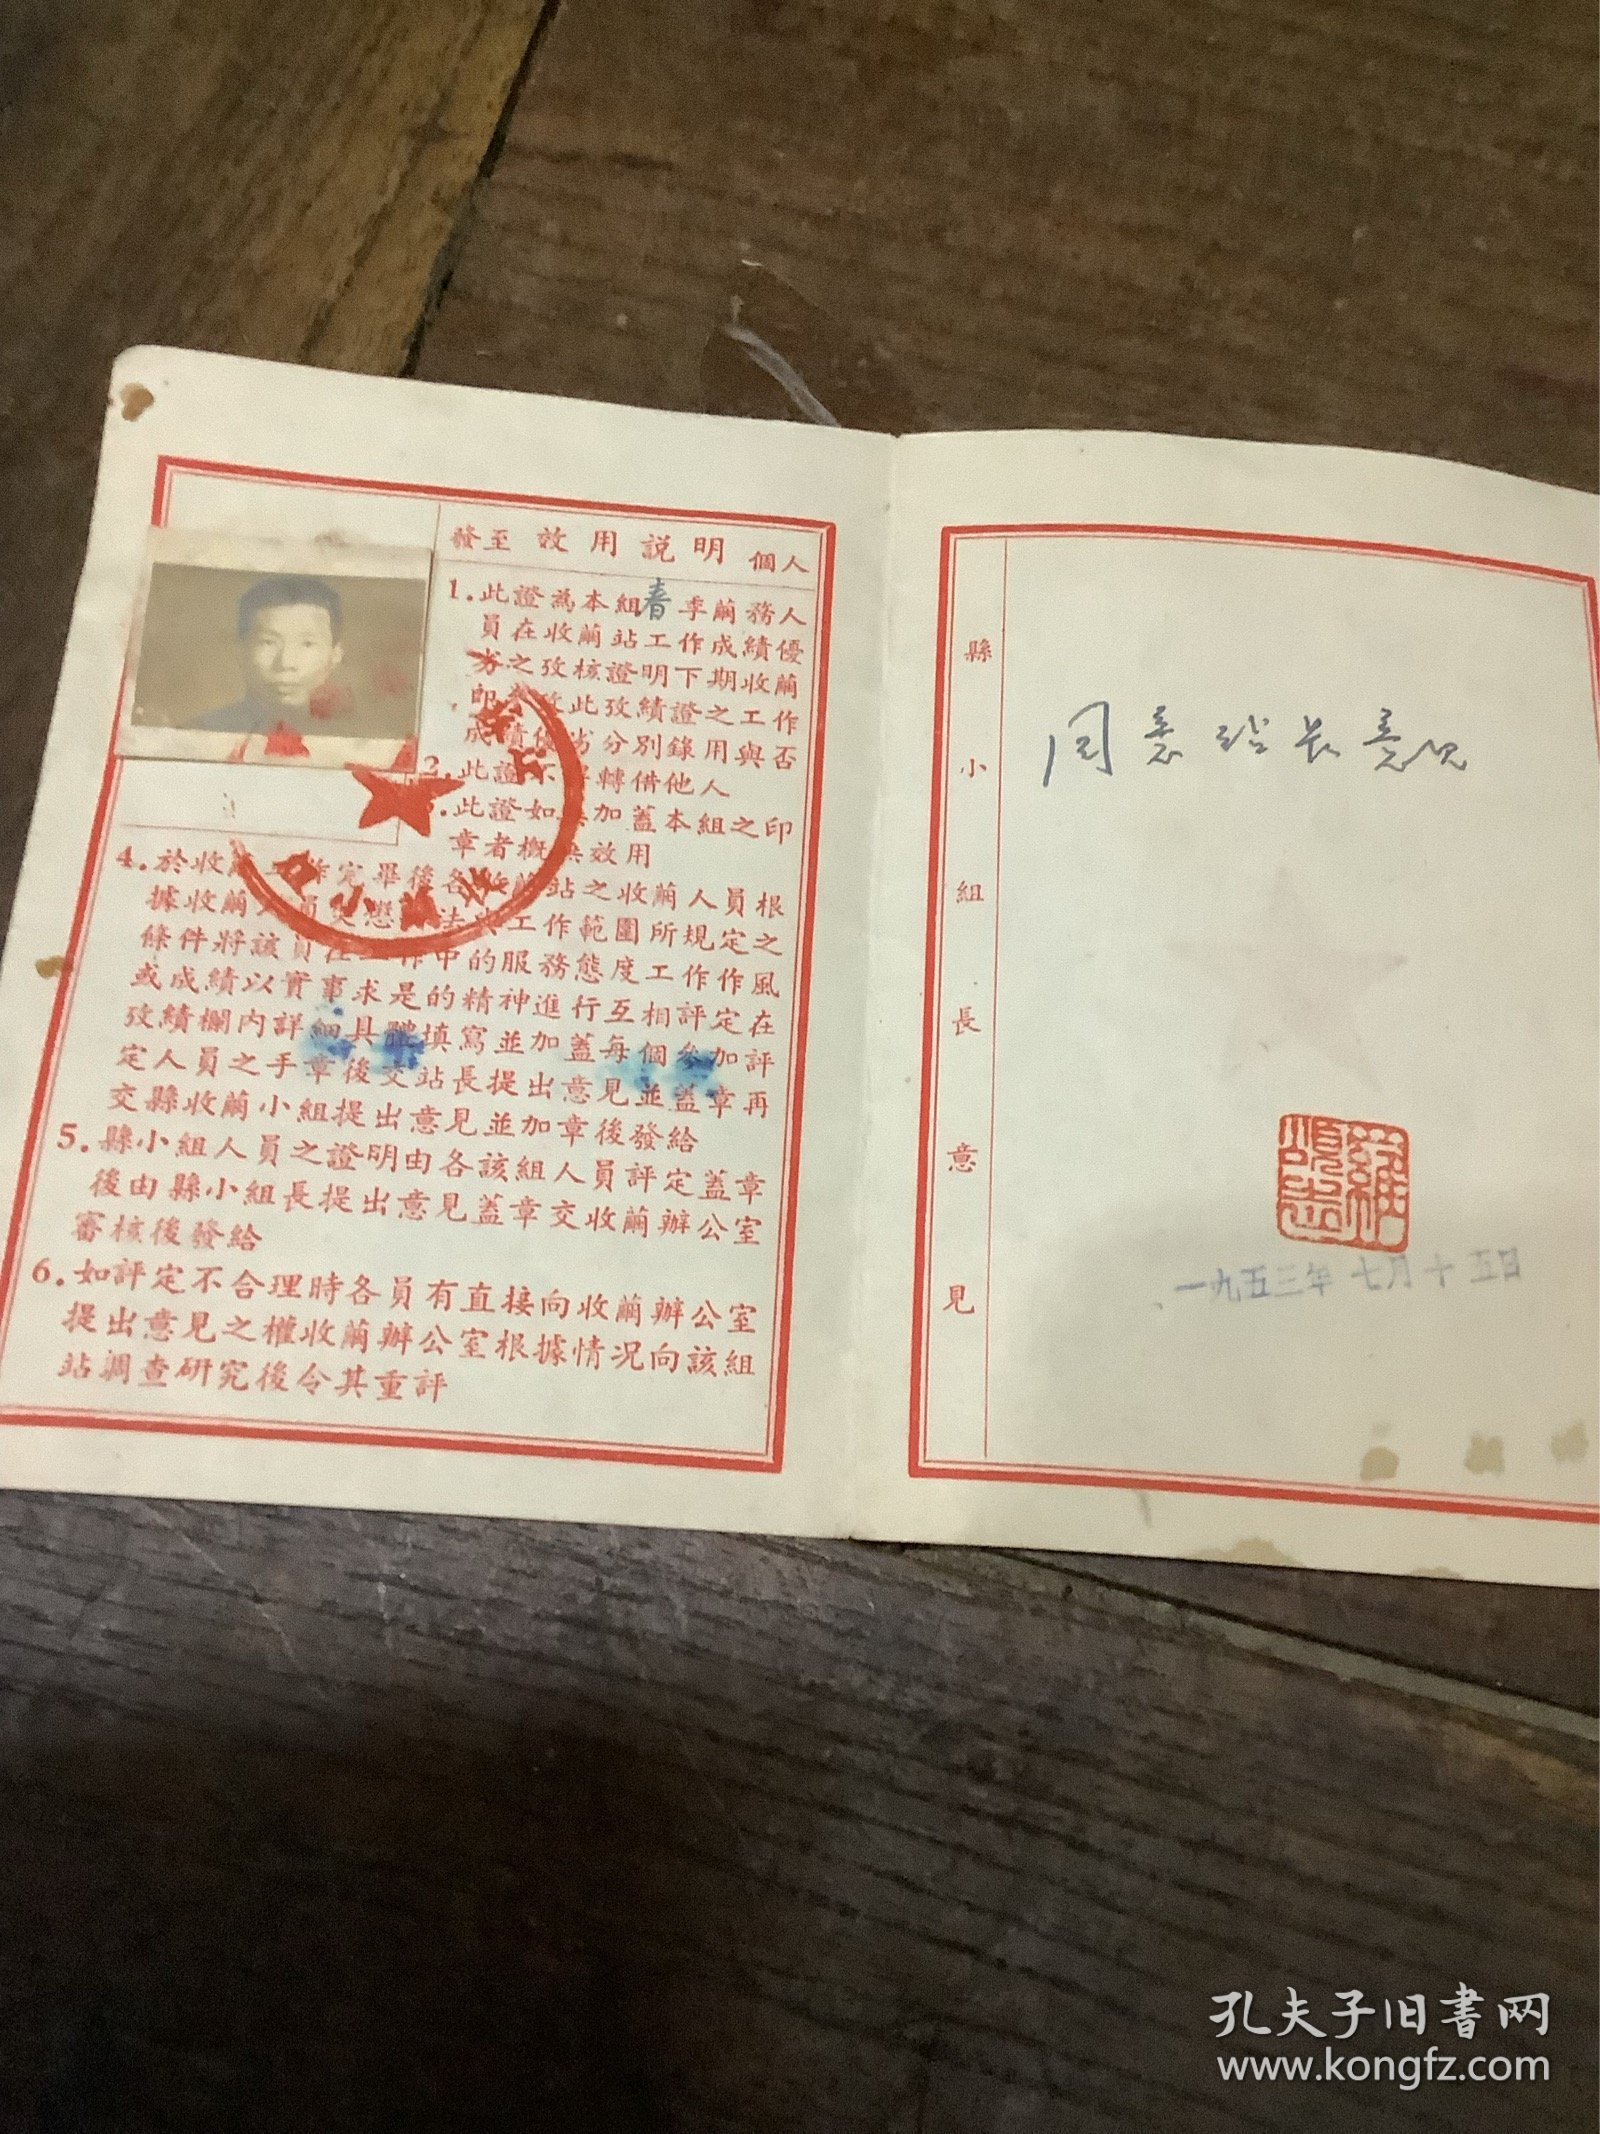 發至 效用説明 個人
1.此證為本組春季繭務人
員在收繭站工作成績優
劣之攷核證明下期收繭
即 攷此攷績證之工作
成績優劣分別錄用與否
2.此證不 轉借他人
.此證如 加蓋本組之印
章者概 效用
4.於收 作完畢後各 站之收繭人員根
據收繭 工作範圍所規定之
條件將該員在 作中的服務態度工作作風
或成績以實事求是的精神進行互相評定在
攷績欄內詳細具體填寫並加蓋每個參加評
定人員之手章後交站長提出意見並蓋章再
交縣收繭小組提出意見並加章後發給
5.縣小組人員之證明由各該組人員評定蓋章
後由縣小組長提出意見蓋章交收繭辦公室
審核後發給
6.如評定不合理時各員有直接向收繭辦公室
提出意見之權收繭辦公室根據情况向該組
站調查研究後令其重評
縣小組長意見
同意站长意见
一九五三年 七月十五日
孔夫子旧书网
www.kongfz.com